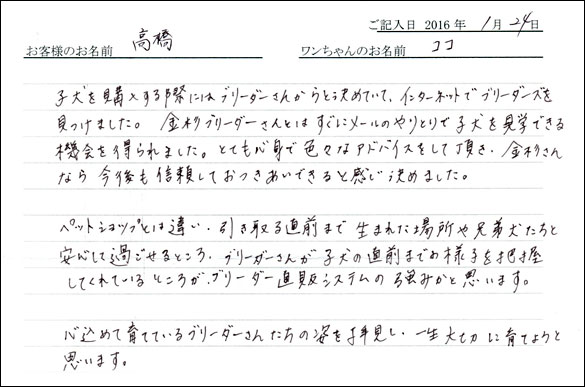 ご記入日 2016年 1月 24日
お客様のお名前 高橋 ワンちゃんのお名前 ココ
子犬を購入する際にはブリーダーさんからと決めていて、インターネットでブリーダーズを
見つけました。金杉ブリーダーさんとはすぐにメールのやりとりで子犬を見学できる
機会を得られました。とても心身で色々なアドバイスをして頂き、金杉さん
なら今後も信頼しておつきあいできると感じ決めました。
ペットショップとは違い、引き取る直前まで生まれた場所や兄弟犬たちと
安心して過ごせるところ、ブリーダーさんが子犬の直前までの様子を把握
してくれているところが、ブリーダー直販システムの強みかと思います。
心込めて育てているブリーダーさんたちの姿を拝見し、一生大切に育てようと
思います。